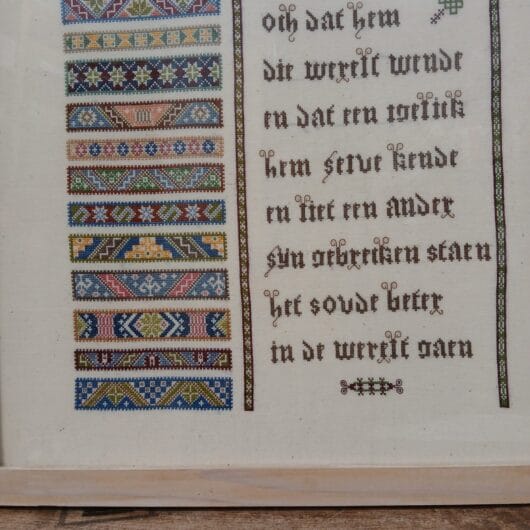 och dat hem
die werelt wende
en dat een igelick
hem selve kende
en liet een ander
syn gebreken staen
het soude beter
in de werelt gaen